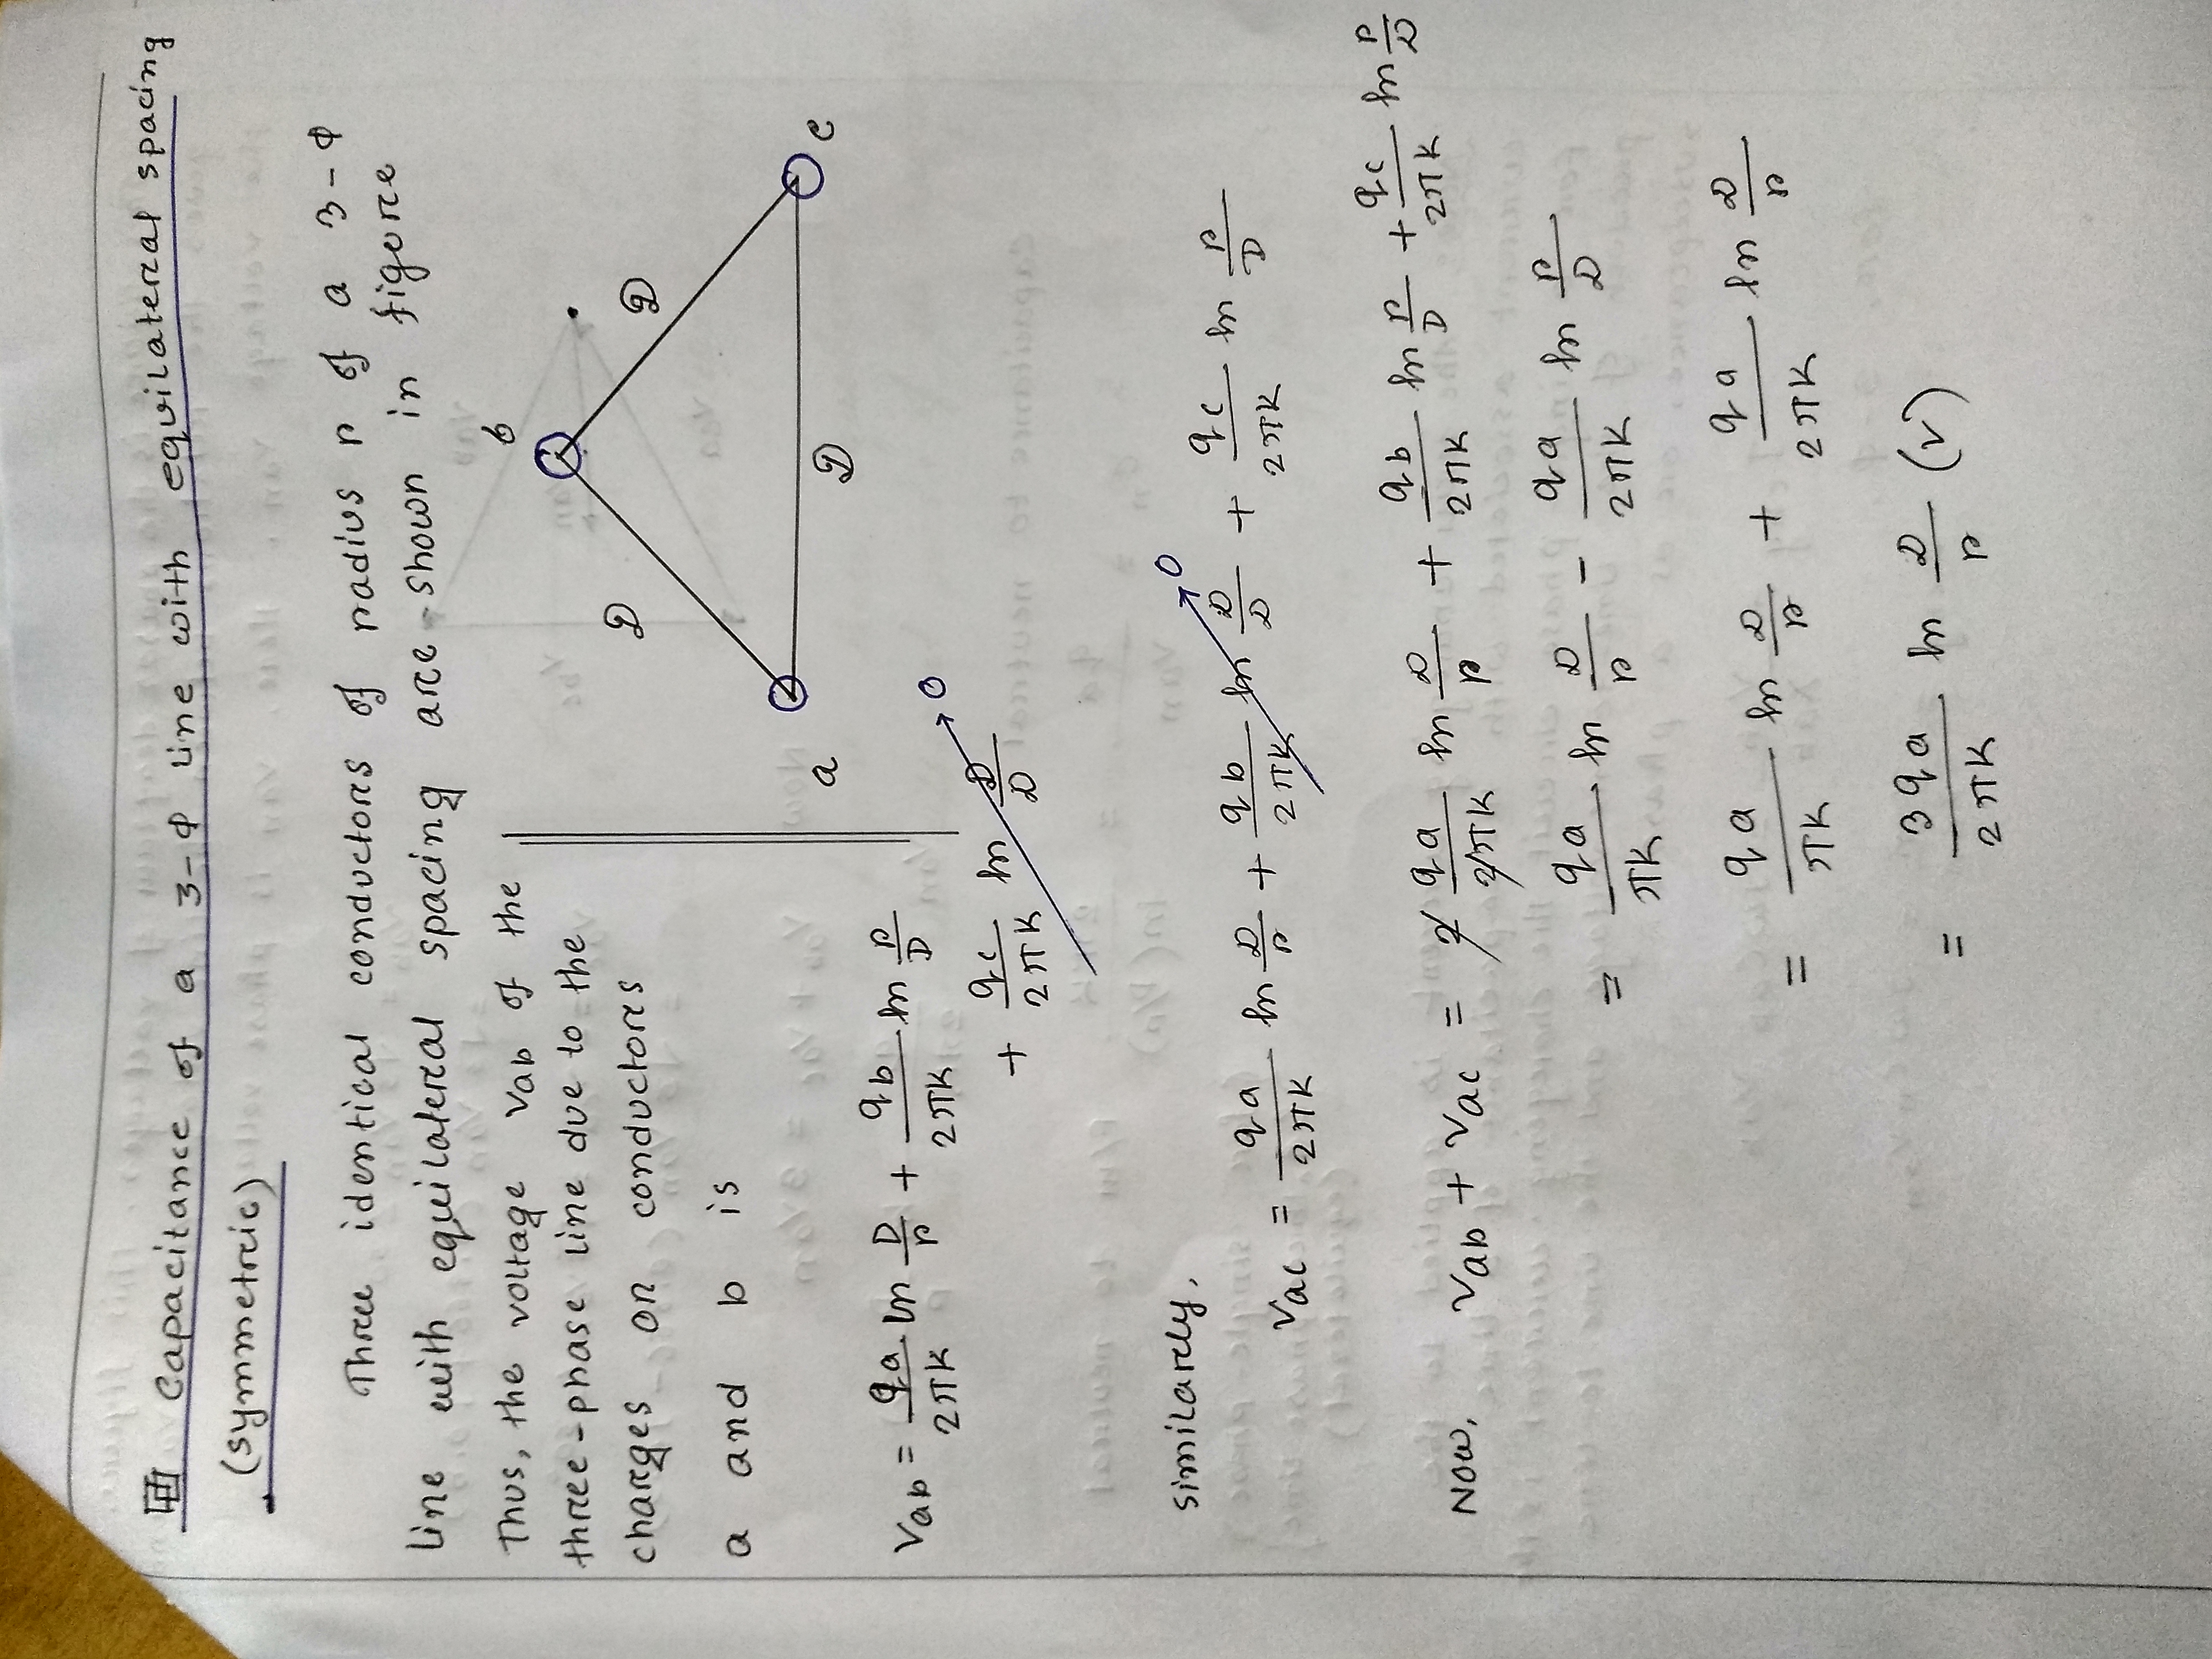 Capacitance of a 3-φ line with equilateral spacing
(symmetric)
Three identical conductors of radius r of a 3-φ
line with equilateral spacing are shown in figure
Thus, the voltage Vab of the
three-phase line due to the
charges on conductors
a and b is
b
D
D
a
D
c
Vab = qa/2πK ln D/r + qb/2πK ln r/D
+ qc/2πK ln D/D → 0
Similarly,
Vac = qa/2πK ln D/r + qb/2πK ln D/D → 0 + qc/2πK ln r/D
Now, Vab + Vac = 2 qa/2πK ln D/r + qb/2πK ln r/D + qc/2πK ln r/D
= qa/πK ln D/r - qa/2πK ln r/D
= qa/πK ln D/r + qa/2πK ln D/r
= 3qa/2πK ln D/r (V)